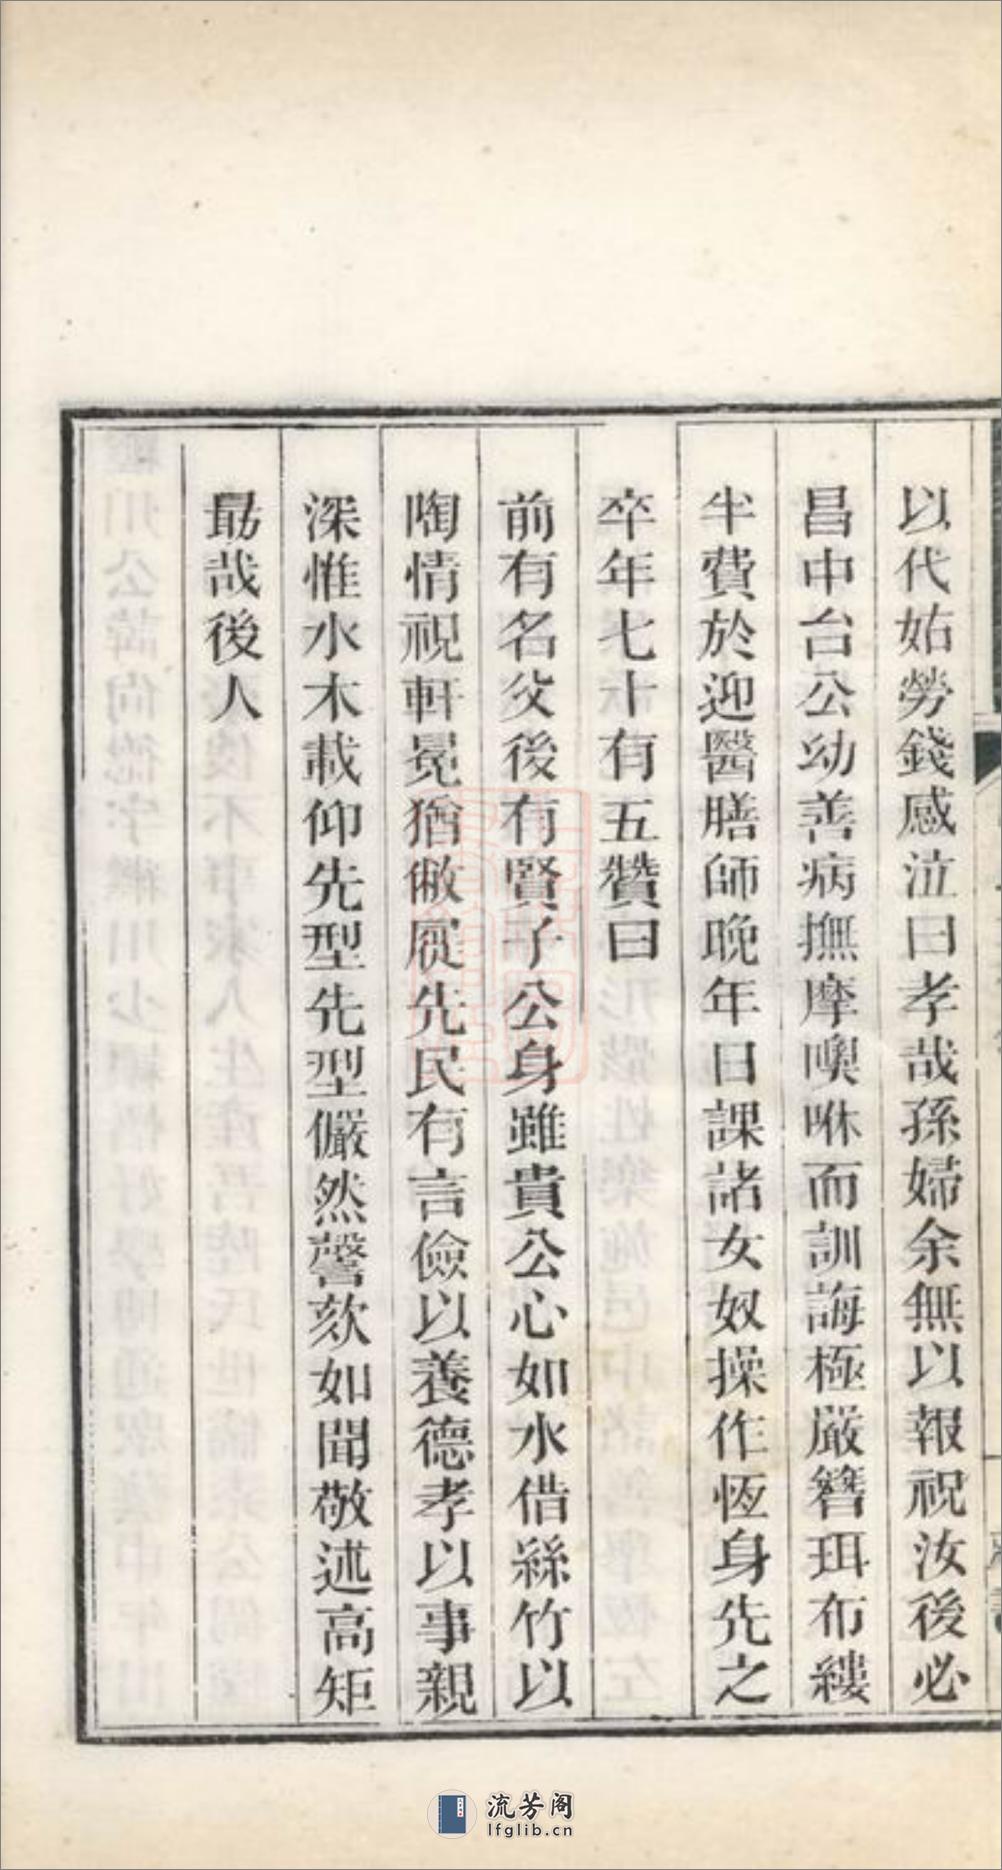 以代姑勞錢感泣曰孝哉孫婦余無以報祝汝後必
昌中台公幼善病撫摩噢咻而訓誨極嚴簪珥布縷
半費於迎醫膳師晚年日課諸女奴操作恆身先之
卒年七十有五贊曰
前有名父後有賢子公身雖貴公心如水借絲竹以
陶情視軒冕猶敝屣先民有言儉以養德孝以事親
深惟水木載仰先型先型儼然謦欬如聞敬述高矩
勗哉後人
流芳阁
lfglib.cn